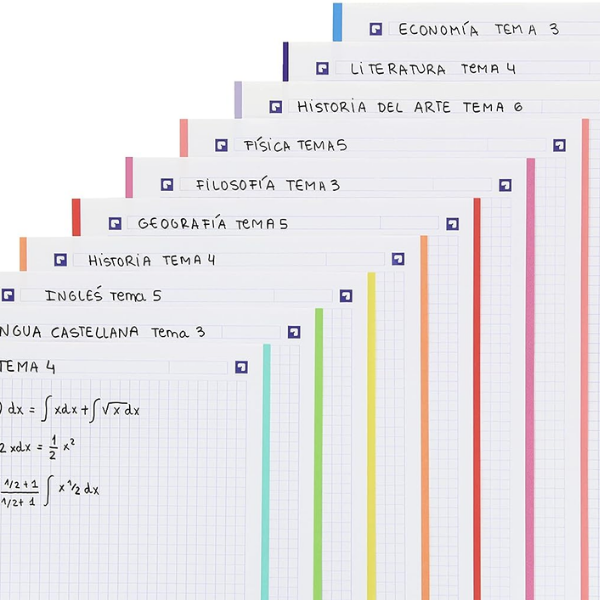 ECONOMÍA TEMA 3
LITERATURA TEMA 4
HISTORIA DEL ARTE TEMA 6
FÍSICA TEMA 5
FILOSOFÍA TEMA 3
GEOGRAFÍA TEMA 5
HISTORIA TEMA 4
INGLÉS Tema 5
NGUA CASTELLANA Tema 3
TEMA 4
) dx = ∫ xdx + ∫ √x dx
2 xdx = 1/2 x²
1/2 + 1 / 1/2 + 1 ∫ x^1/2 dx